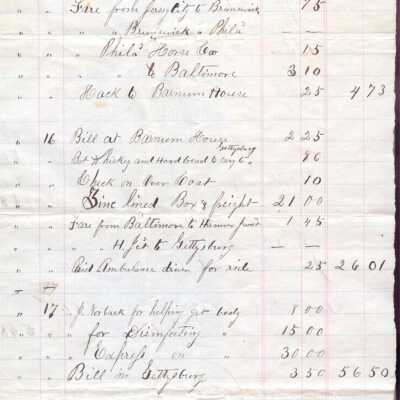 " " Fare from Jersey City to Brunswick 75
" " " Brunswick " Phila — —
" " Phila Horse Car 15
" " " to Baltimore 3 10
" " Hack to Barnum House 25 4 73
" 16 Bill at Barnum House 2 25
" " Bot Whisky and Hard bread to carry to Gettysburg 96
" " Check on Over Coat 10
" " Zinc lined Box & freight 21 00
" " Fare from Baltimore to Hanover Junct 1 45
" " " " H. Jct to Gettysburg — —
" " Paid Ambulance driver for ride 25 26 01
" 17 J. for helping get body 8 00
" " " for Disinfecting " 15 00
" " " Express on " 30 00
" " Bill in Gettysburg 3 50 56 50